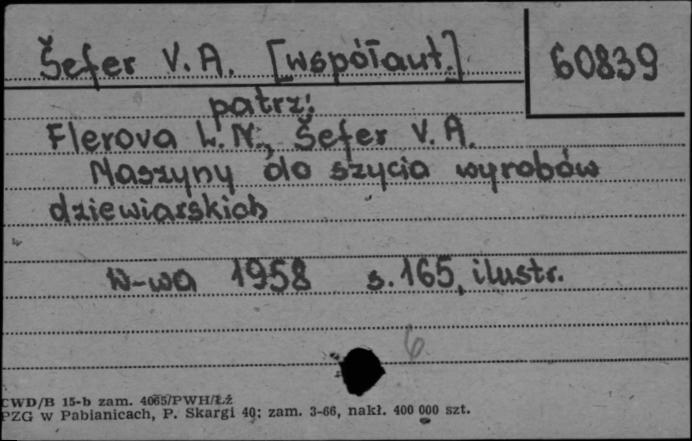 Šefer V. A. [współaut.] 60839
patrz:
Flerova L. N., Šefer V. A.
Maszyny do szycia wyrobów
dziewiarskich
W-wa 1958 s. 165, ilustr.
6
CWD/B 15-b zam. 4065/PWH/Łż
PZG w Pabianicach, P. Skargi 40; zam. 3-66, nakł. 400 000 szt.